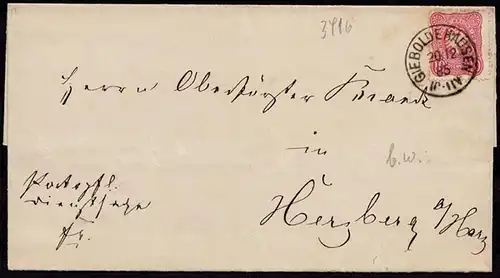 3416
GIEBOLDEHAUSEN
20 12
85
10-11V
Herrn Oberförster
in
b.w.
Portopfl.
Dienstsache
Herzberg a/Harz